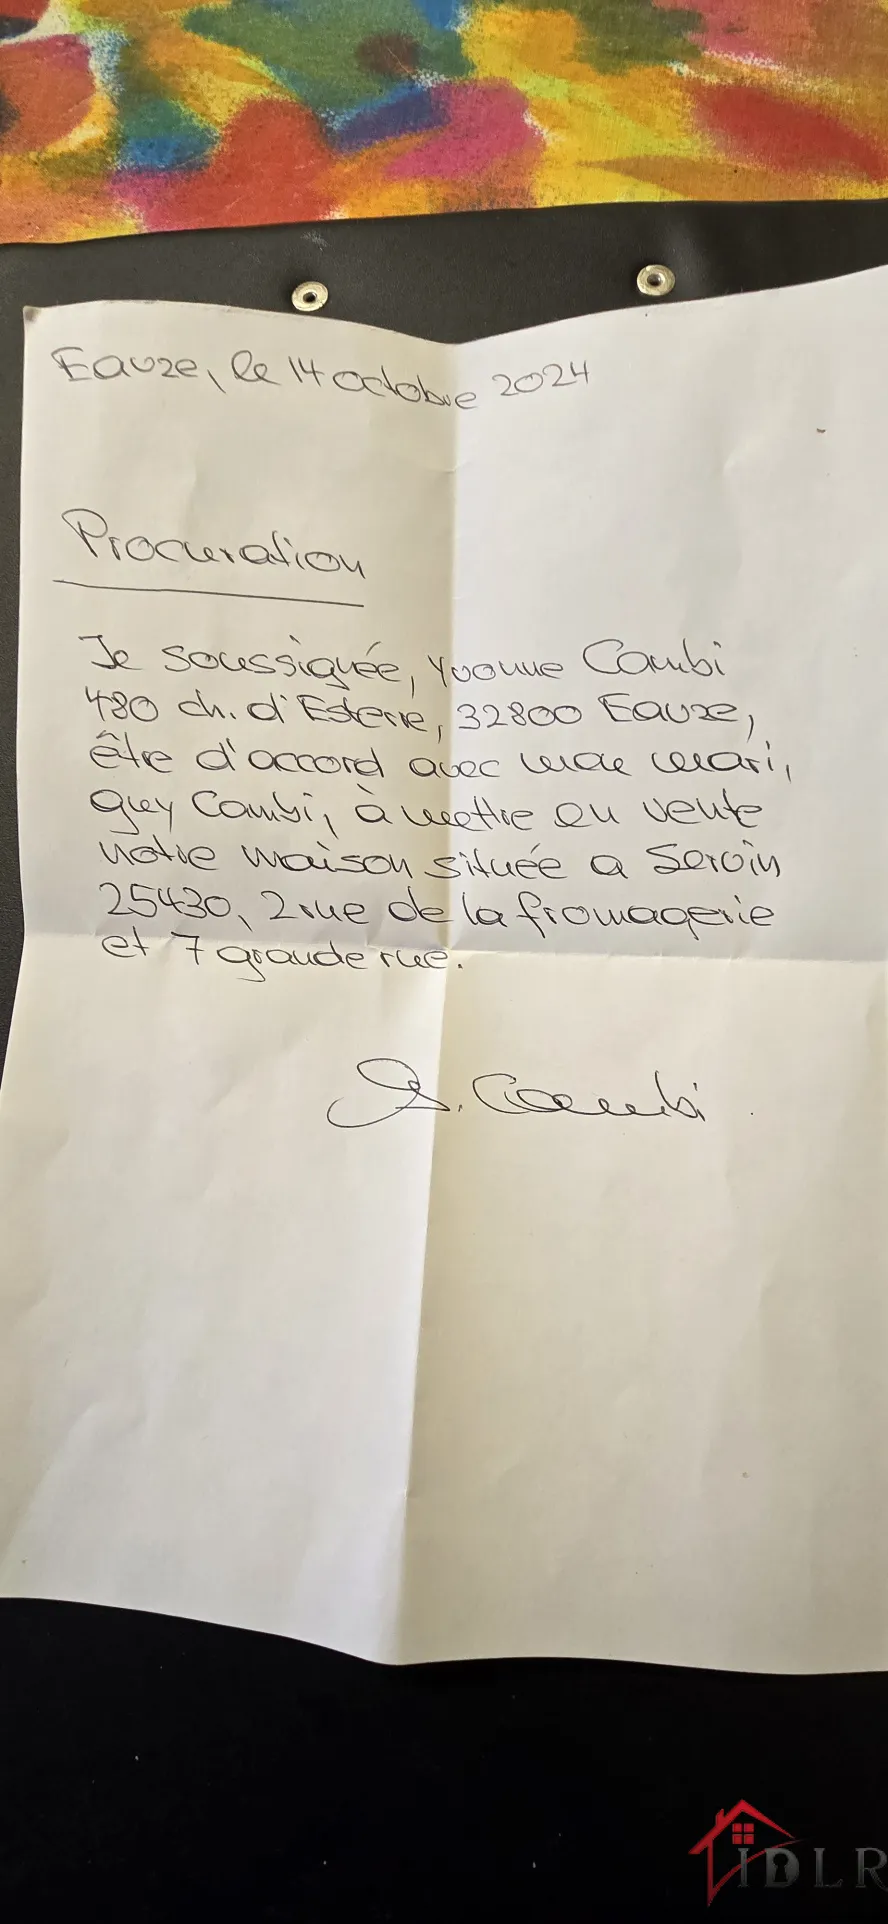 Eauze, le 14 octobre 2024
Procuration
Je soussignée, Yvonne Cambi
480 ch. d'Esterre, 32800 Eauze,
être d'accord avec mon mari,
guy Cambi, à mettre en vente
notre maison située a Servin
25430, 2 rue de la fromagerie
et 7 grande rue.
Cambi
IDLR